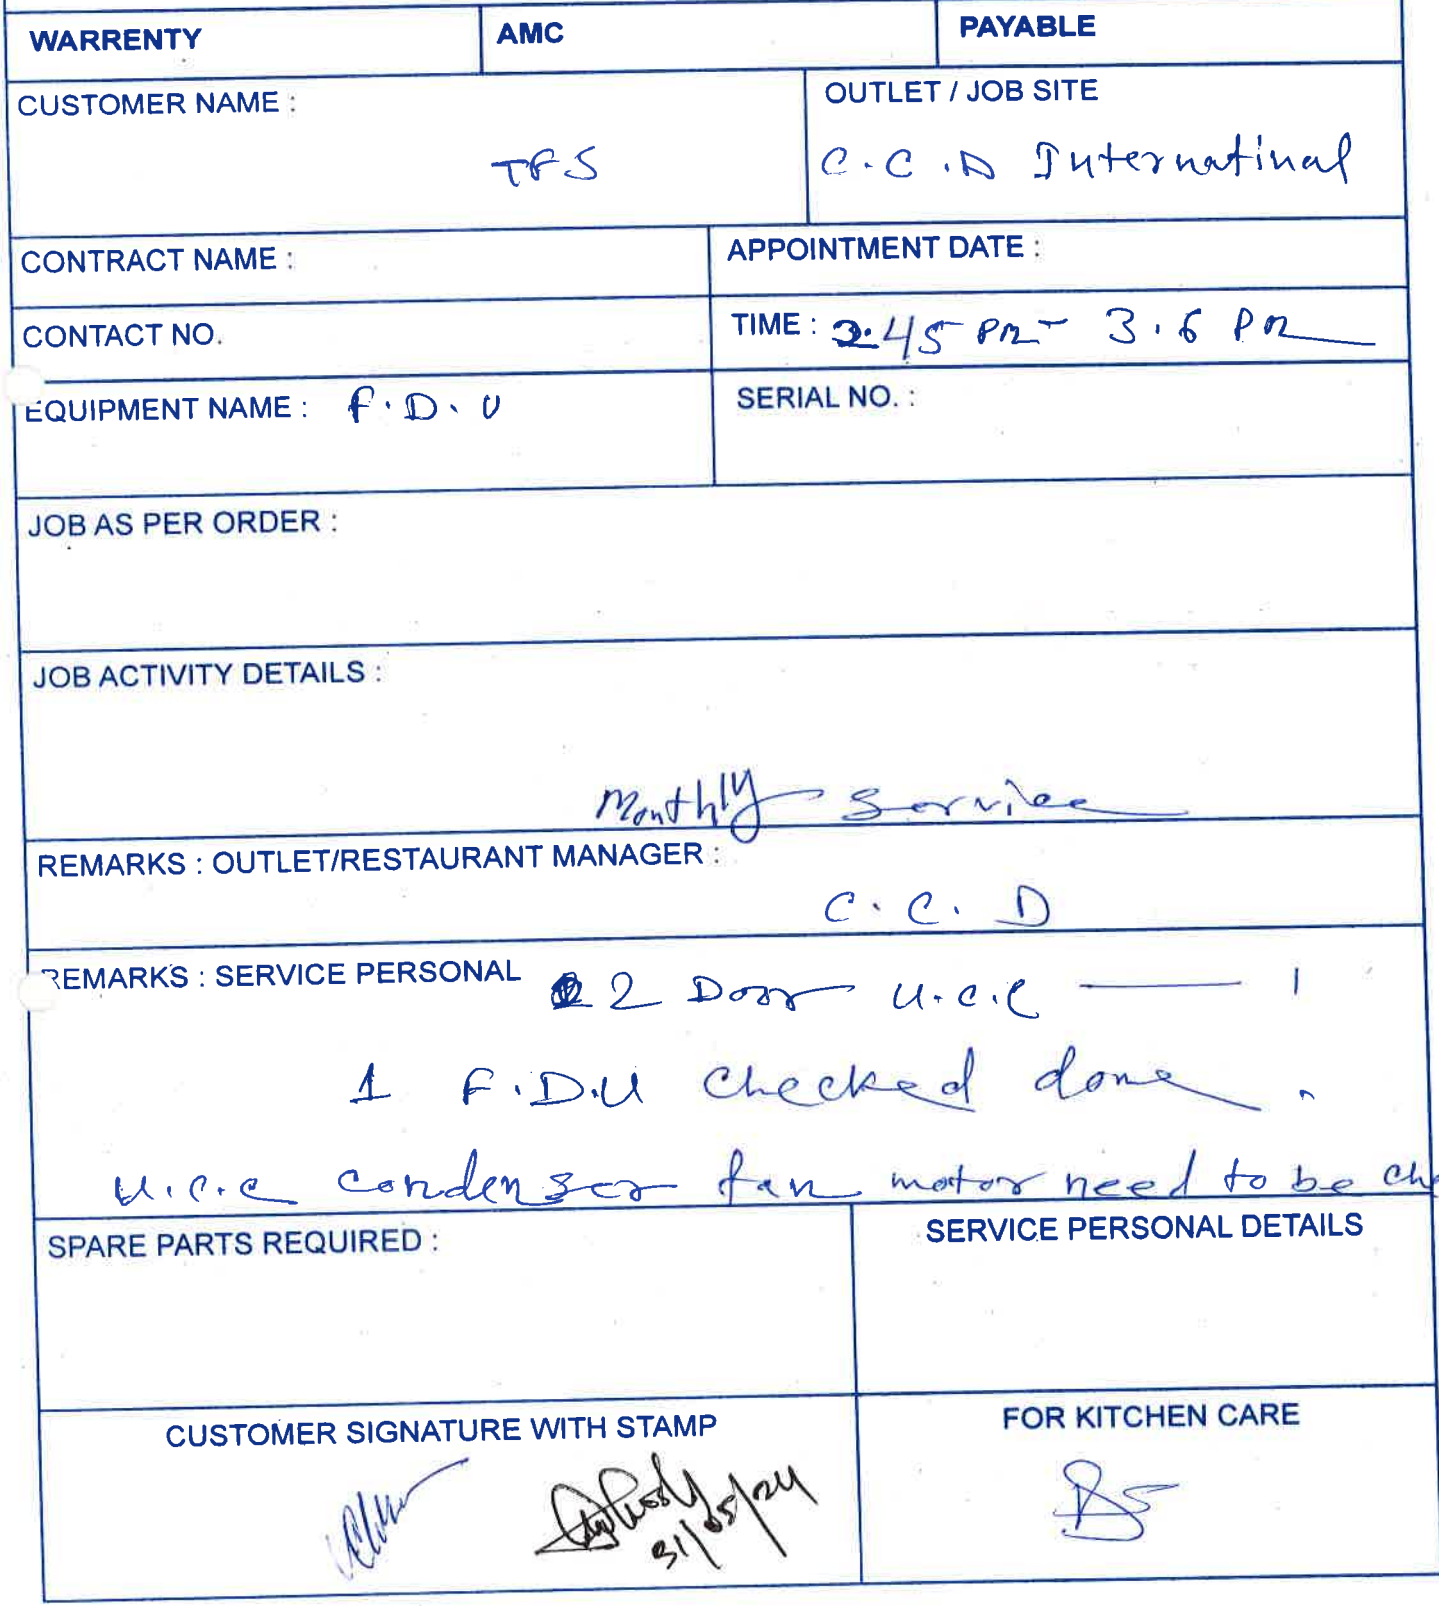 WARRENTY AMC PAYABLE
CUSTOMER NAME : OUTLET / JOB SITE
TFS C.C.D Internatinal
CONTRACT NAME : APPOINTMENT DATE :
CONTACT NO. TIME : 2.45 PM - 3.6 PM
EQUIPMENT NAME : F.D.U SERIAL NO. :
JOB AS PER ORDER :
JOB ACTIVITY DETAILS :
Monthly Service
REMARKS : OUTLET/RESTAURANT MANAGER :
C.C.D
REMARKS : SERVICE PERSONAL 2 Door U.C.C — 1
1 F.D.U checked done.
U.C.C condenser fan motor need to be ch
SPARE PARTS REQUIRED : SERVICE PERSONAL DETAILS
CUSTOMER SIGNATURE WITH STAMP FOR KITCHEN CARE
31/05/24